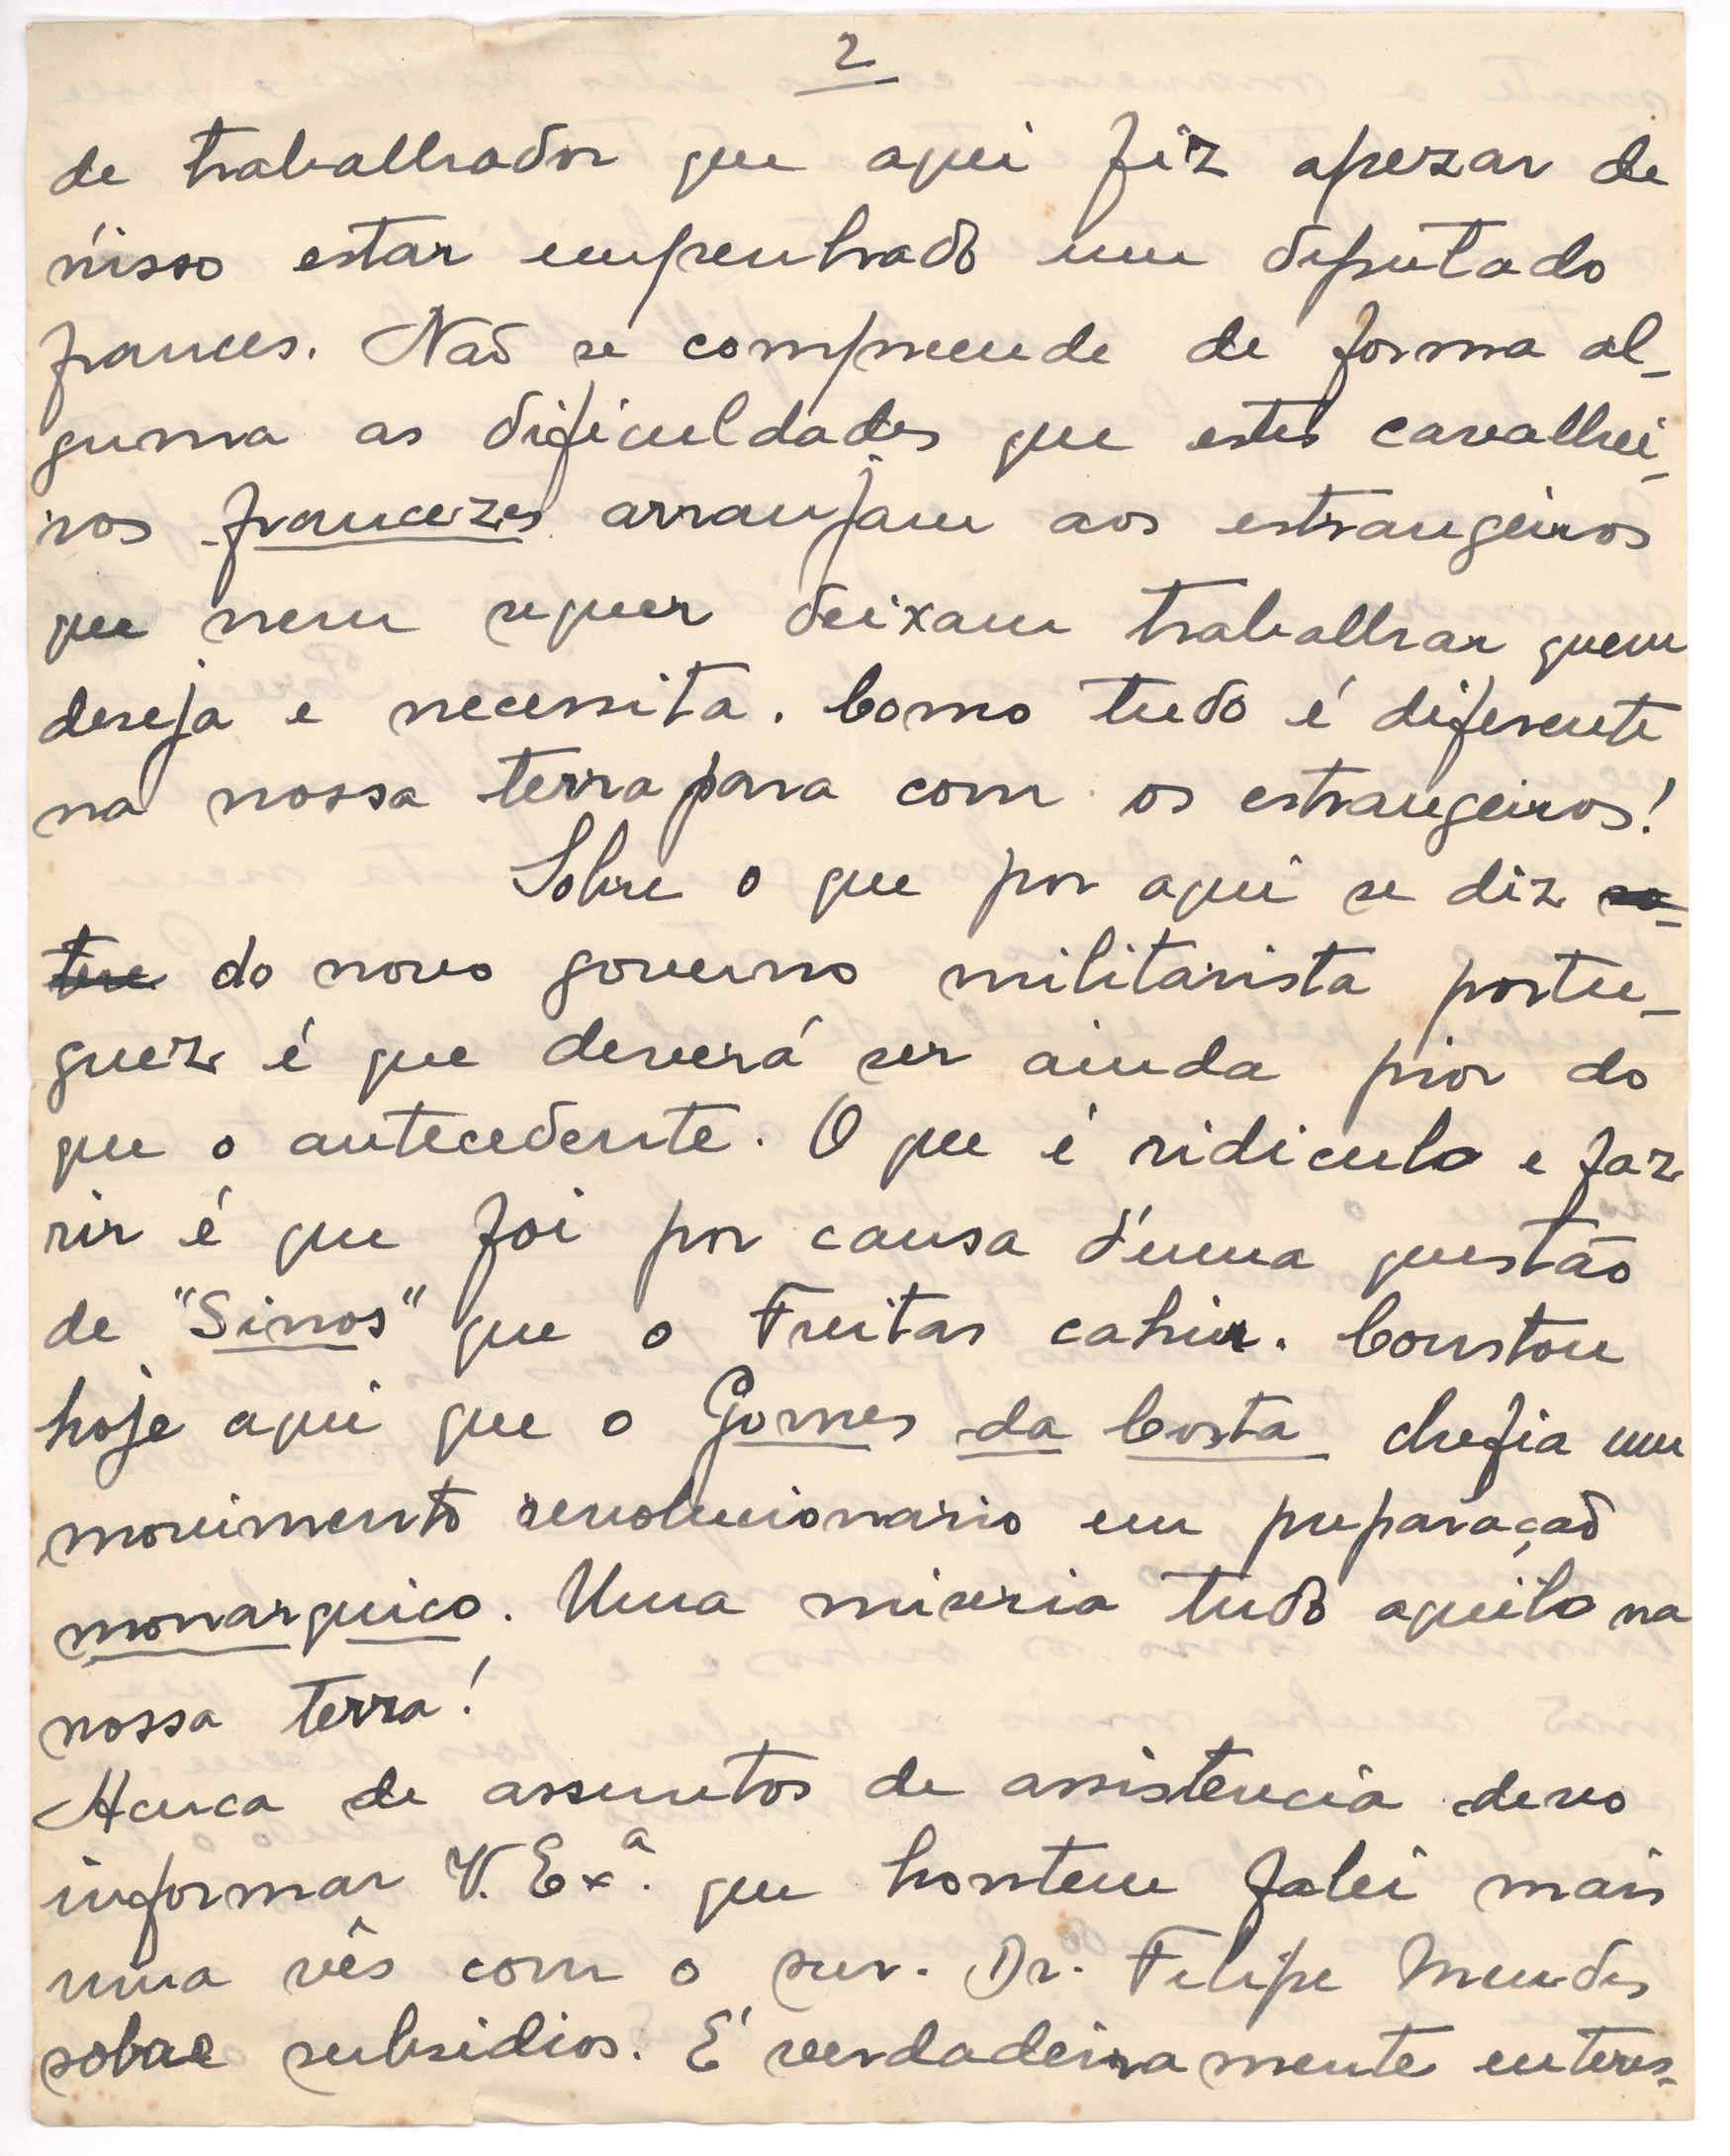 2
de trabalhador que aqui fiz apezar de
nisso estar empenhado um deputado
frances. Não se compreende de forma al-
guma as dificuldades que estes cavalhei-
ros francezes arranjam aos estrangeiros
que nem sequer deixam trabalhar quem
deseja e necessita. Como tudo é diferente
na nossa terra para com os estrangeiros!
Sobre o que por aqui se diz
do novo governo militarista portu-
guez é que deverá ser ainda pior do
que o antecedente. O que é ridiculo e faz
rir é que foi por causa d'uma questão
de "Sinos" que o Freitas cahiu. Constou
hoje aqui que o Gomes da Costa chefia um
movimento revolucionario em preparação
monarquico. Uma miseria tudo aquilo na
nossa terra!
Àcerca de assuntos de assistencia devo
informar V. Exª. que hontem falei mais
uma vês com o snr. Dr. Filipe Mendes
sobre subsidios. É verdadeiramente enteres-